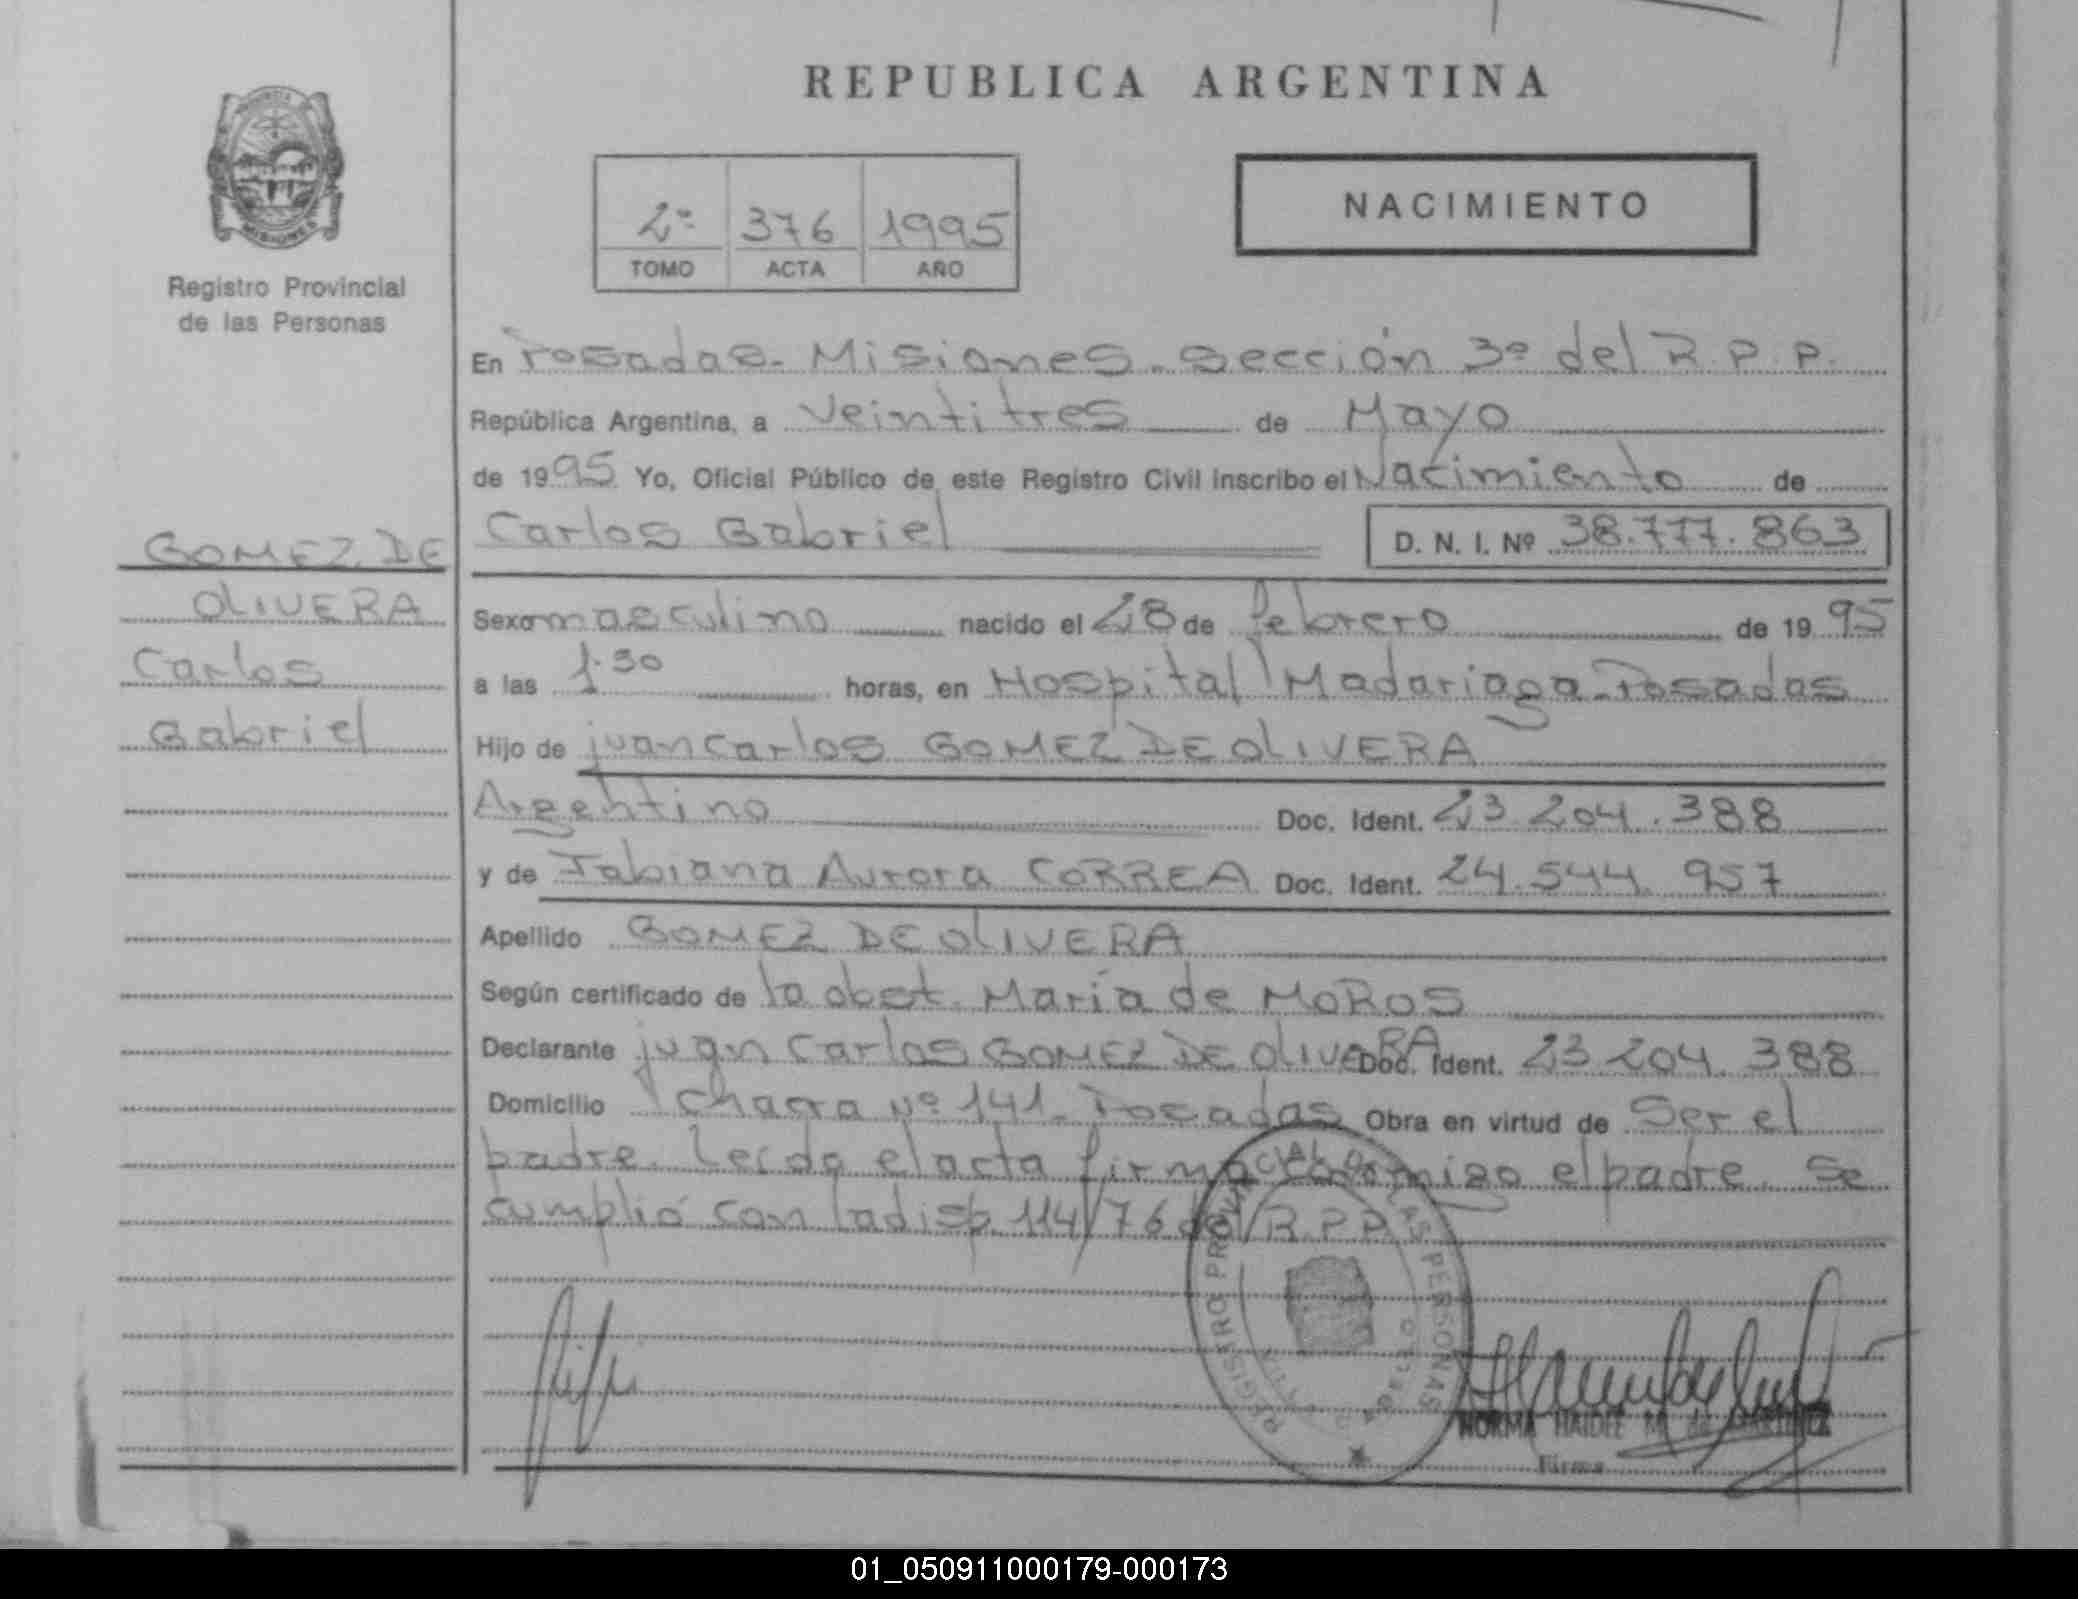 REPUBLICA ARGENTINA
PROVINCIA
MISIONES
Registro Provincial
de las Personas
2º 376 1995
TOMO ACTA AÑO
NACIMIENTO
En Posadas- Misiones. Sección 3º del R.P.P.
República Argentina, a Veintitres de Mayo
de 1995 Yo, Oficial Público de este Registro Civil inscribo el Nacimiento de
Carlos Gabriel D. N. I. Nº 38.777.863
GOMEZ DE
OLIVERA
Carlos
Gabriel
Sexo masculino nacido el 28 de febrero de 1995
a las 1.30 horas, en Hospital Madariaga-Posadas
Hijo de juan Carlos GOMEZ DE OLIVERA
Argentino Doc. Ident. 23.204.388
y de Fabiana Aurora CORREA Doc. Ident. 24.544.957
Apellido GOMEZ DE OLIVERA
Según certificado de la obst. María de MOROS
Declarante juan Carlos GOMEZ DE OLIVERA Doc. Ident. 23.204.388
Domicilio Chacra Nº 141. Posadas Obra en virtud de Ser el
padre. Leída el acta firma conmigo el padre. Se
cumplió con la disp. 114/76 del R.P.P.
REGISTRO PROVINCIAL DE LAS PERSONAS
NORMA HAIDEE M. de MARTINEZ
Firma
01_050911000179-000173